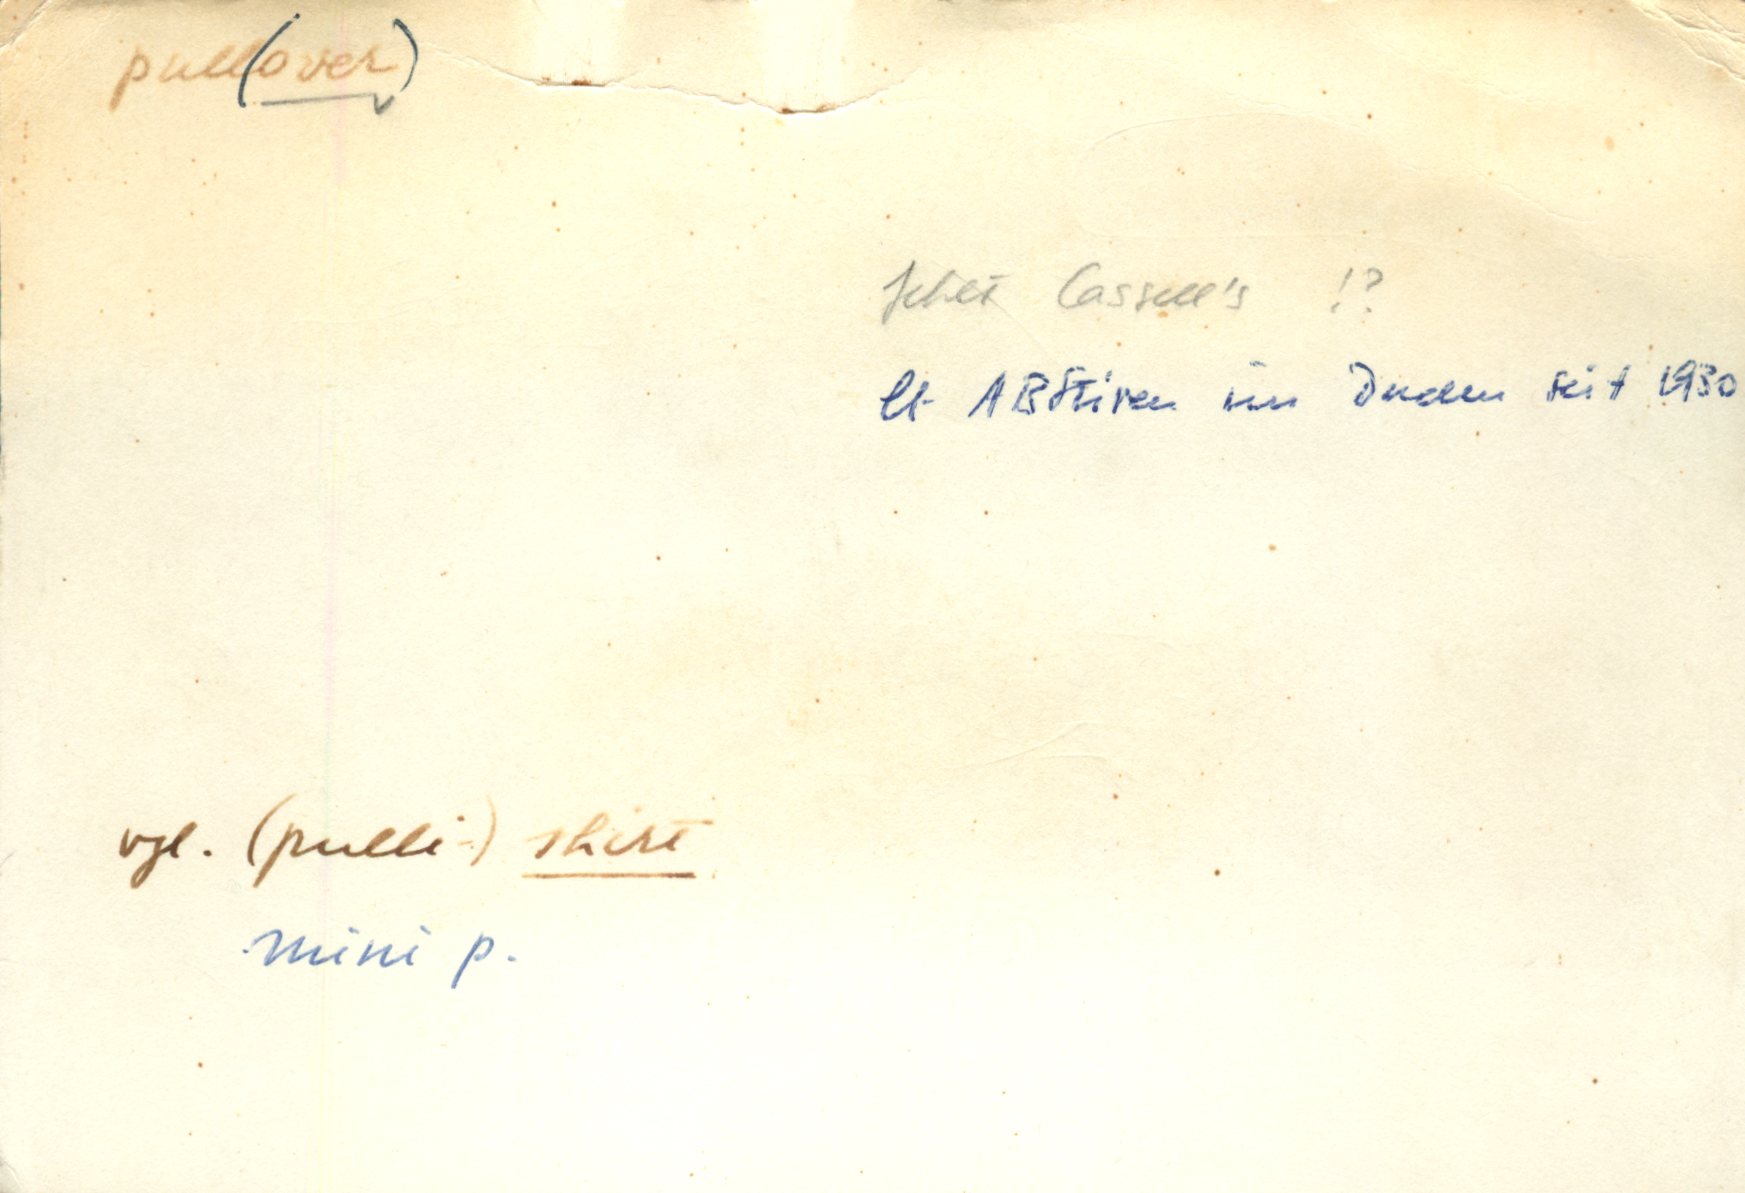 pull(over)
fehlt Cassell's !?
lt ABStiven im Duden seit 1930
vgl. (pulli-) shirt
mini p.